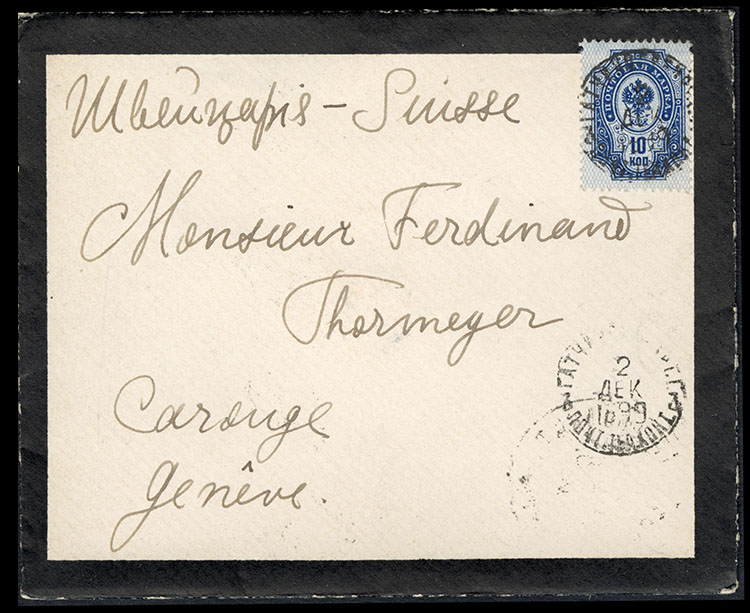 Швейцарія - Suisse
ПОЧТОВАЯ МАРКА
ДЕК
10
КОП
Monsieur Ferdinand
Thormeyer
2
ДЕК
1899
Carouge
Genêve.